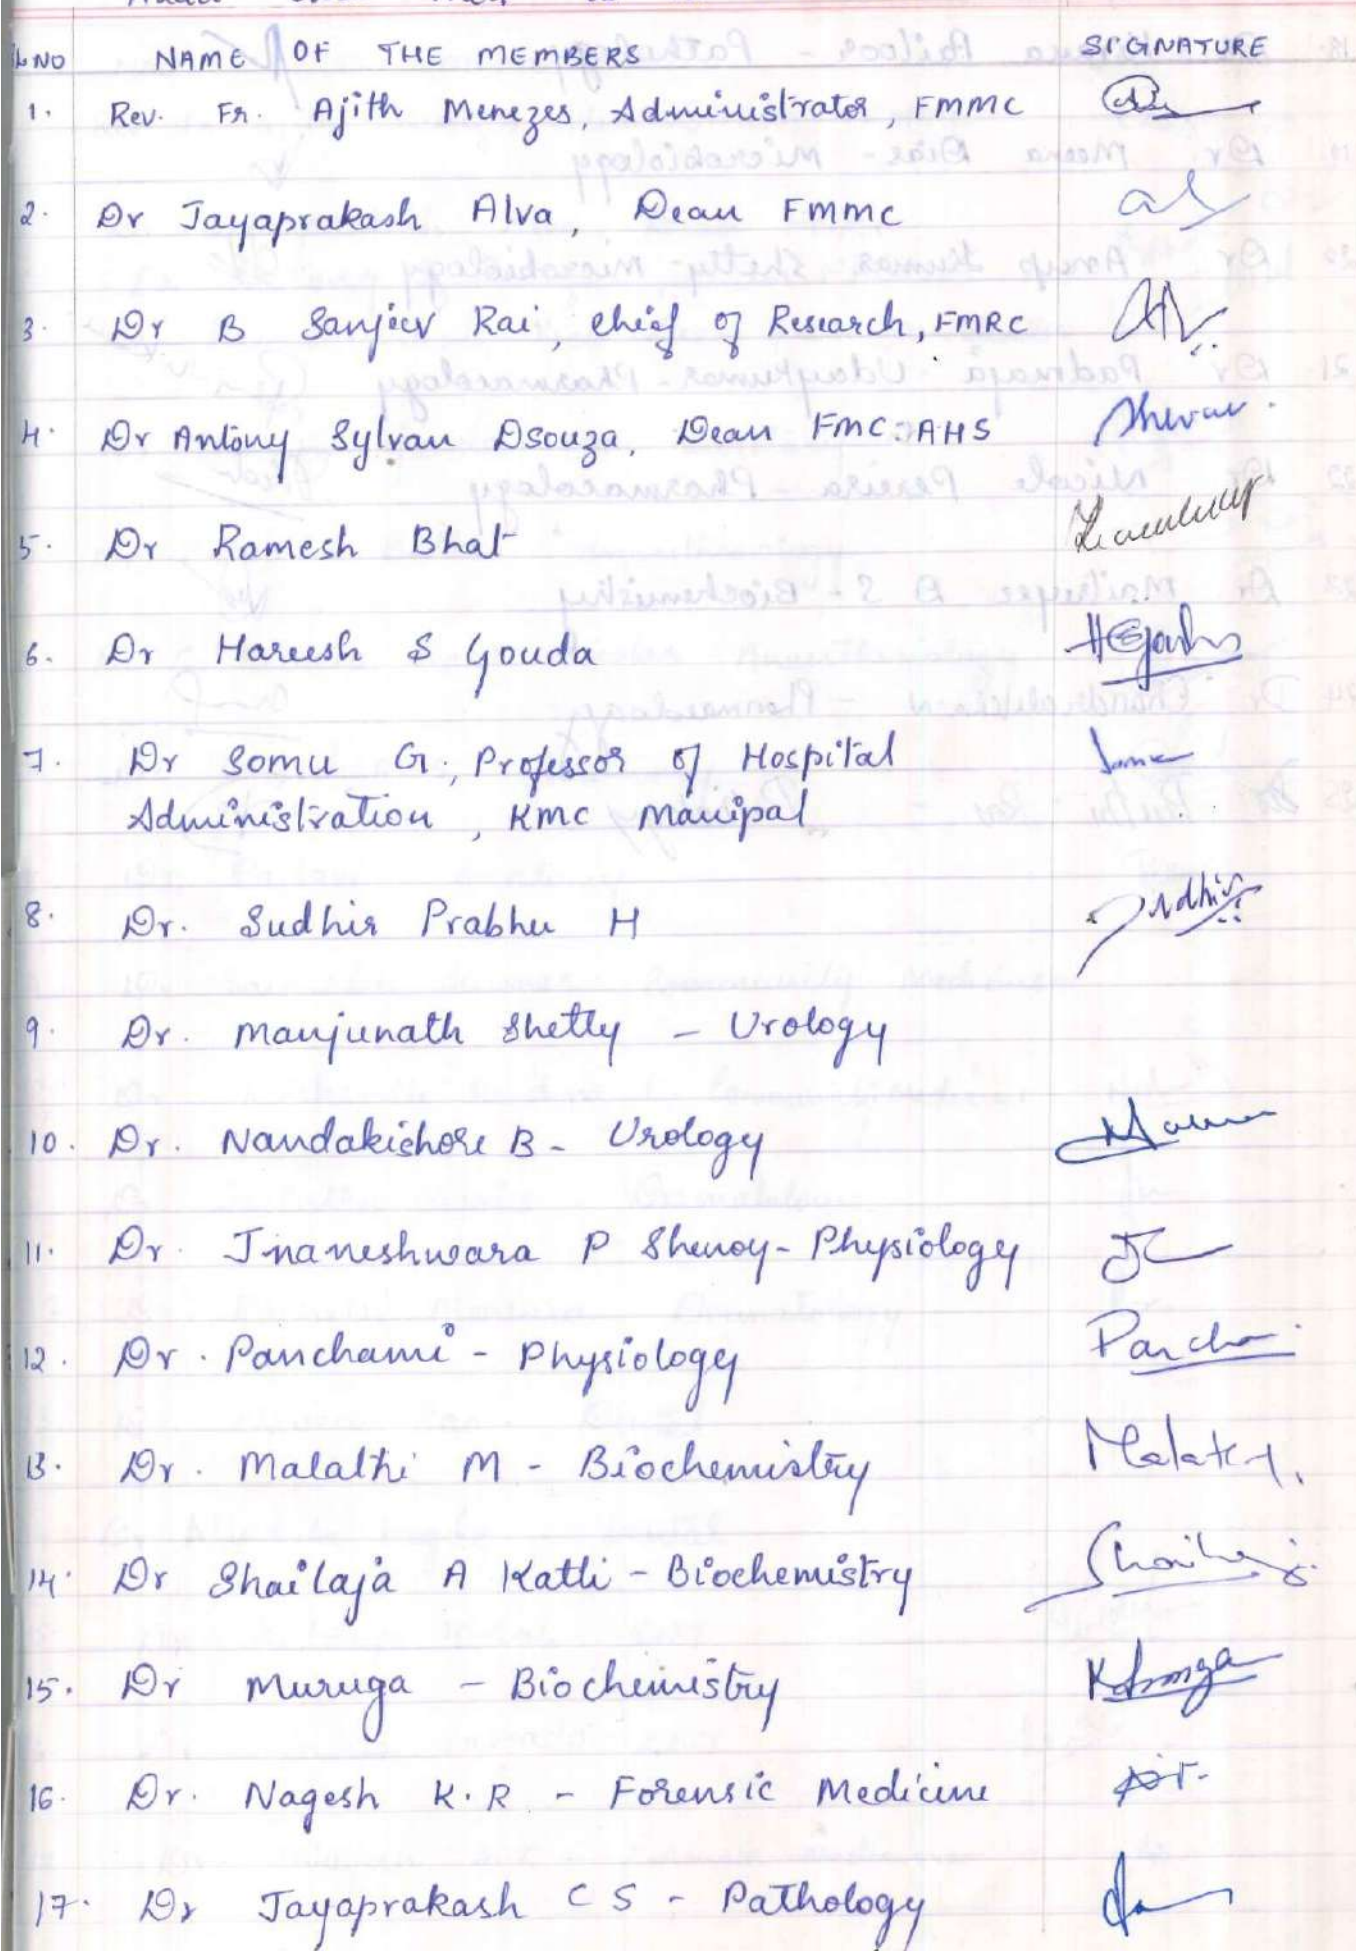 SL NO NAME OF THE MEMBERS SIGNATURE
1. Rev. Fr. Ajith Menezes, Administrator, FMMC
2. Dr Jayaprakash Alva, Dean FMMC
3. Dr B Sanjeev Rai, Chief of Research, FMRC
4. Dr Antony Sylvan Dsouza, Dean FMC.AHS
5. Dr Ramesh Bhat
6. Dr Hareesh S Gouda
7. Dr Somu G., Professor of Hospital
Administration, KMC Manipal
8. Dr. Sudhir Prabhu H Sudhir
9. Dr. Manjunath Shetty - Urology
10. Dr. Nandakishore B - Urology
11. Dr. Jnaneshwara P Shenoy - Physiology
12. Dr. Panchami - Physiology Pancha
13. Dr. Malathi M - Biochemistry
14. Dr Shailaja A Katti - Biochemistry
15. Dr Muruga - Biochemistry
16. Dr. Nagesh K.R - Forensic Medicine
17. Dr Jayaprakash C S - Pathology